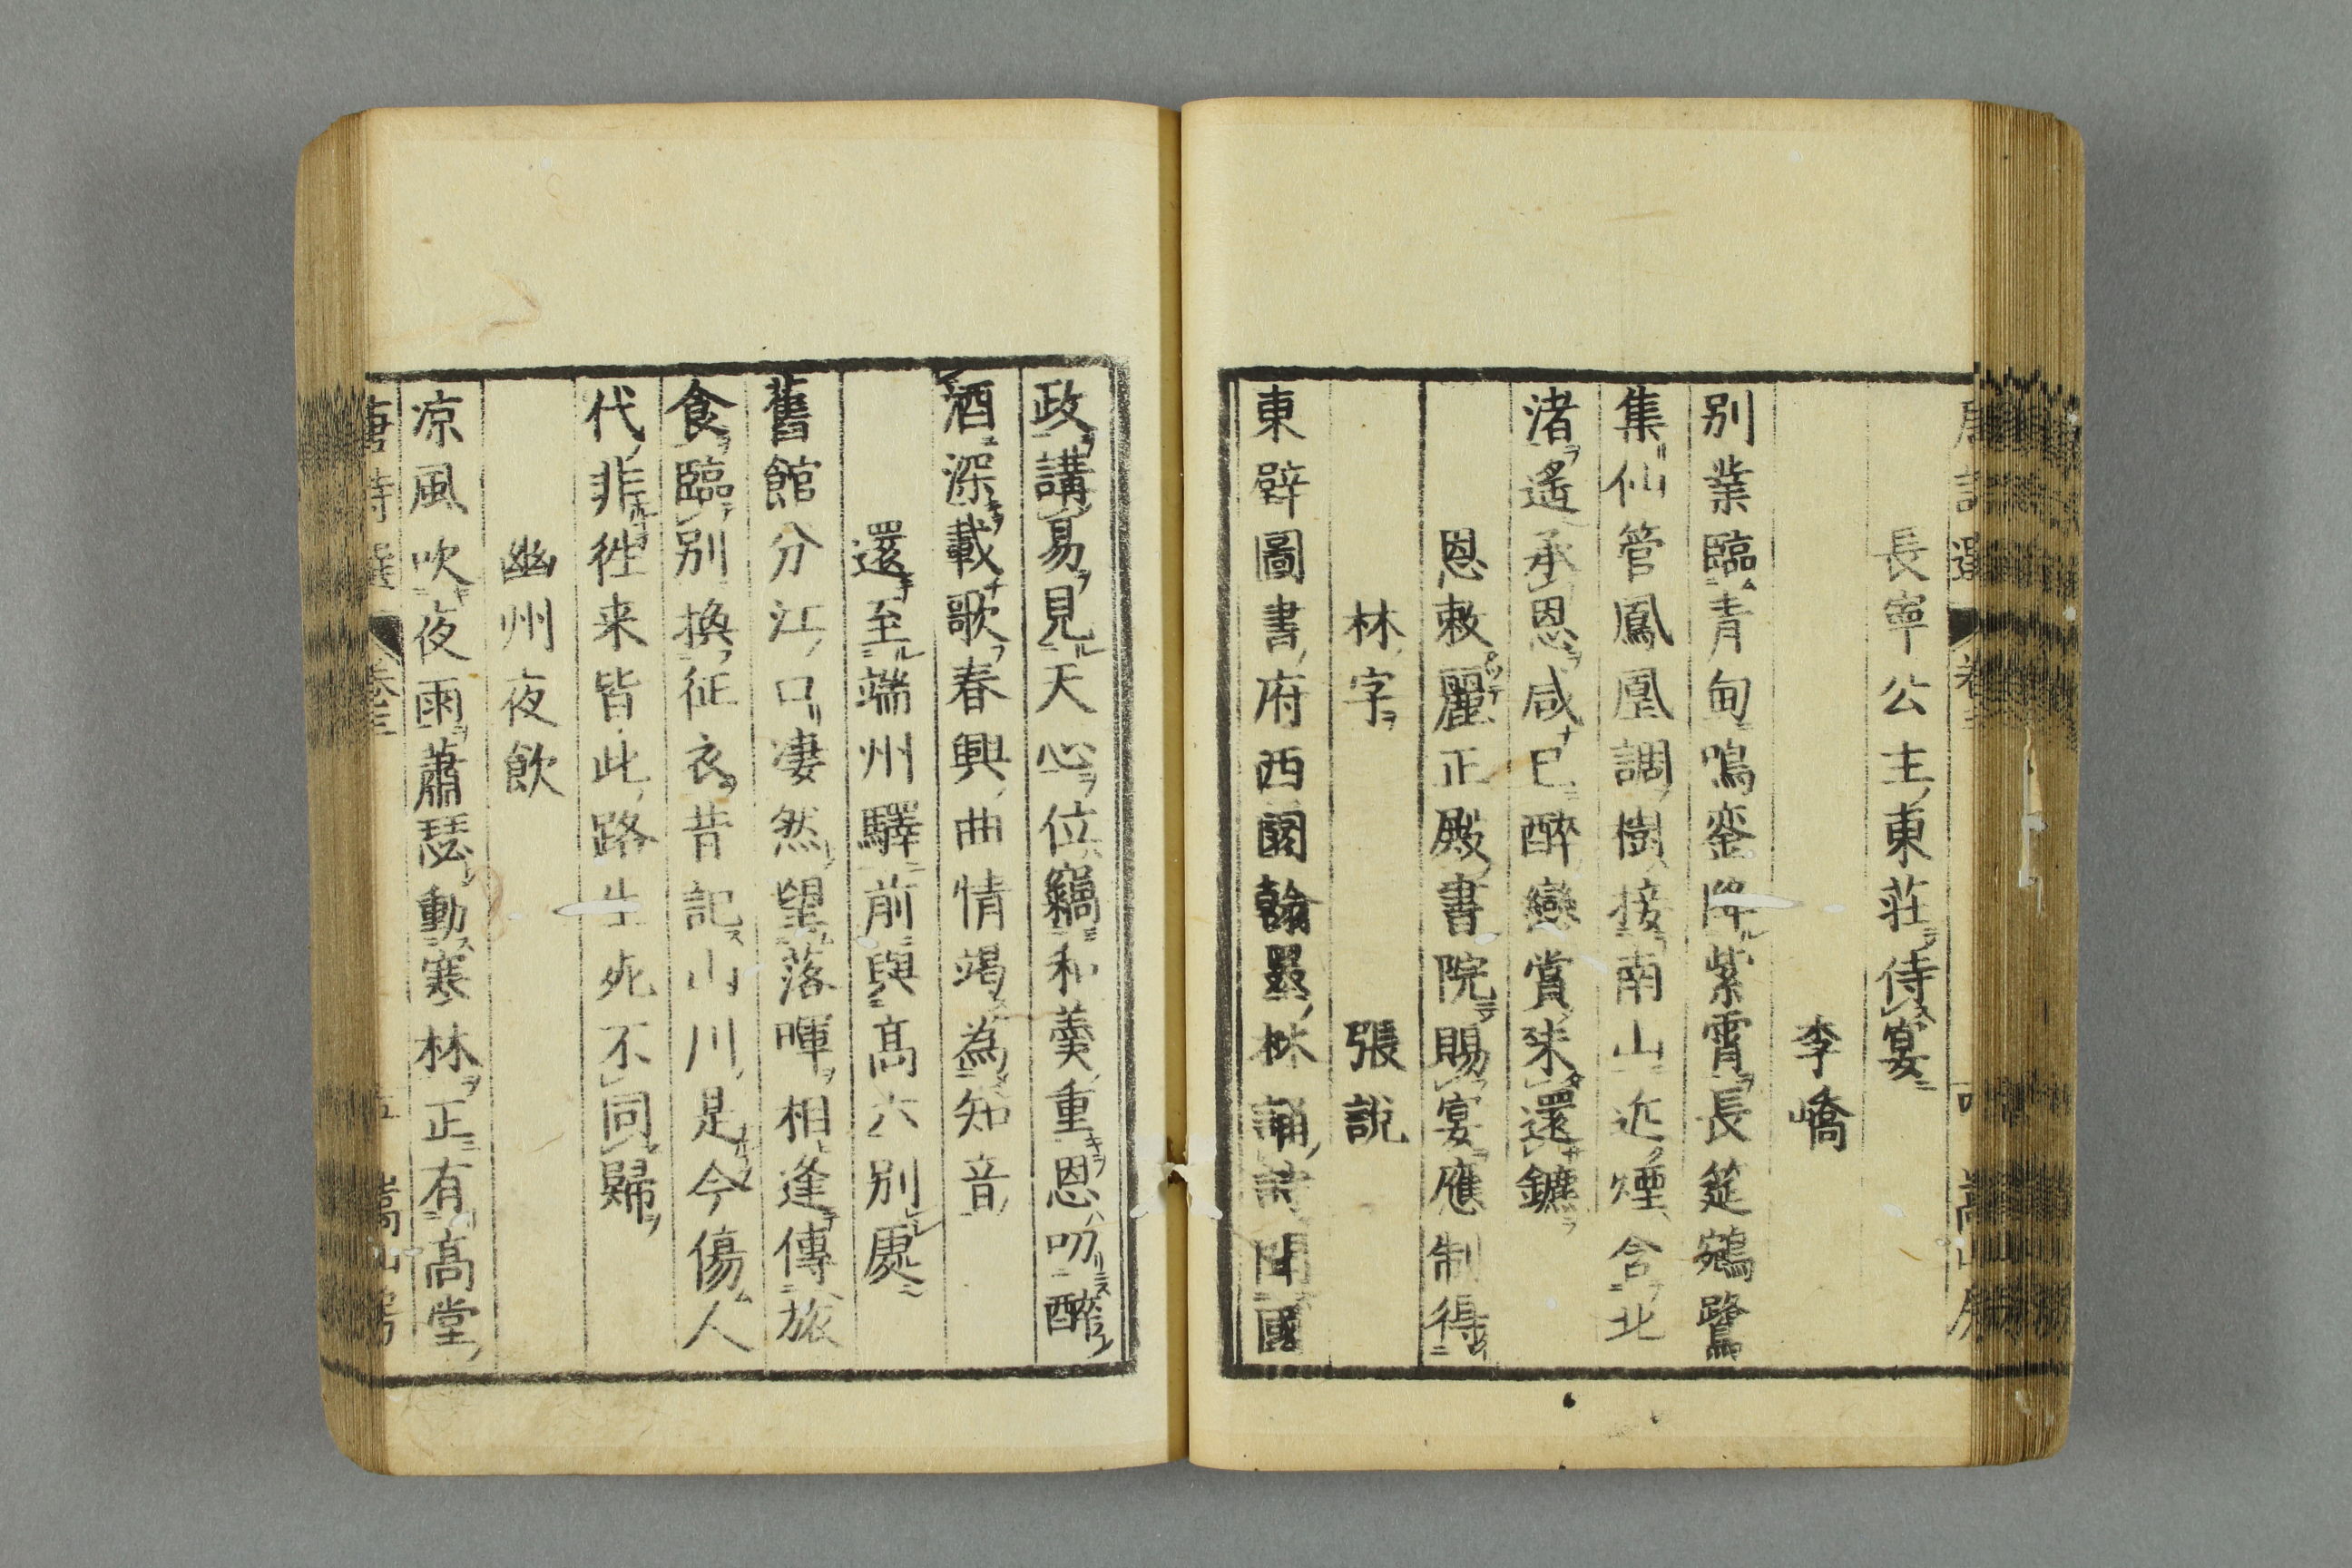 長寧公主東莊侍宴
李嶠
別業臨青甸鳴鑾降紫霄長筵鵷鷺
集仙管鳳凰調樹接南山近煙含北
渚遙承恩咸已醉戀賞未還鑣
恩敕麗正殿書院賜宴應制得
林字
張說
東辟圖書府西園翰墨林誦詩聞國
政講易見天心位竊和羹重恩叨醉
酒深載歌春興曲情竭為知音
還至端州驛前與高六別處
舊館分江口凄然望落暉相逢傳旅
食臨別換征衣昔記山川是今傷人
代非往来皆此路生死不同歸
幽州夜飲
凉風吹夜雨蕭瑟動寒林正有高堂
唐詩選 卷三
嵩山房